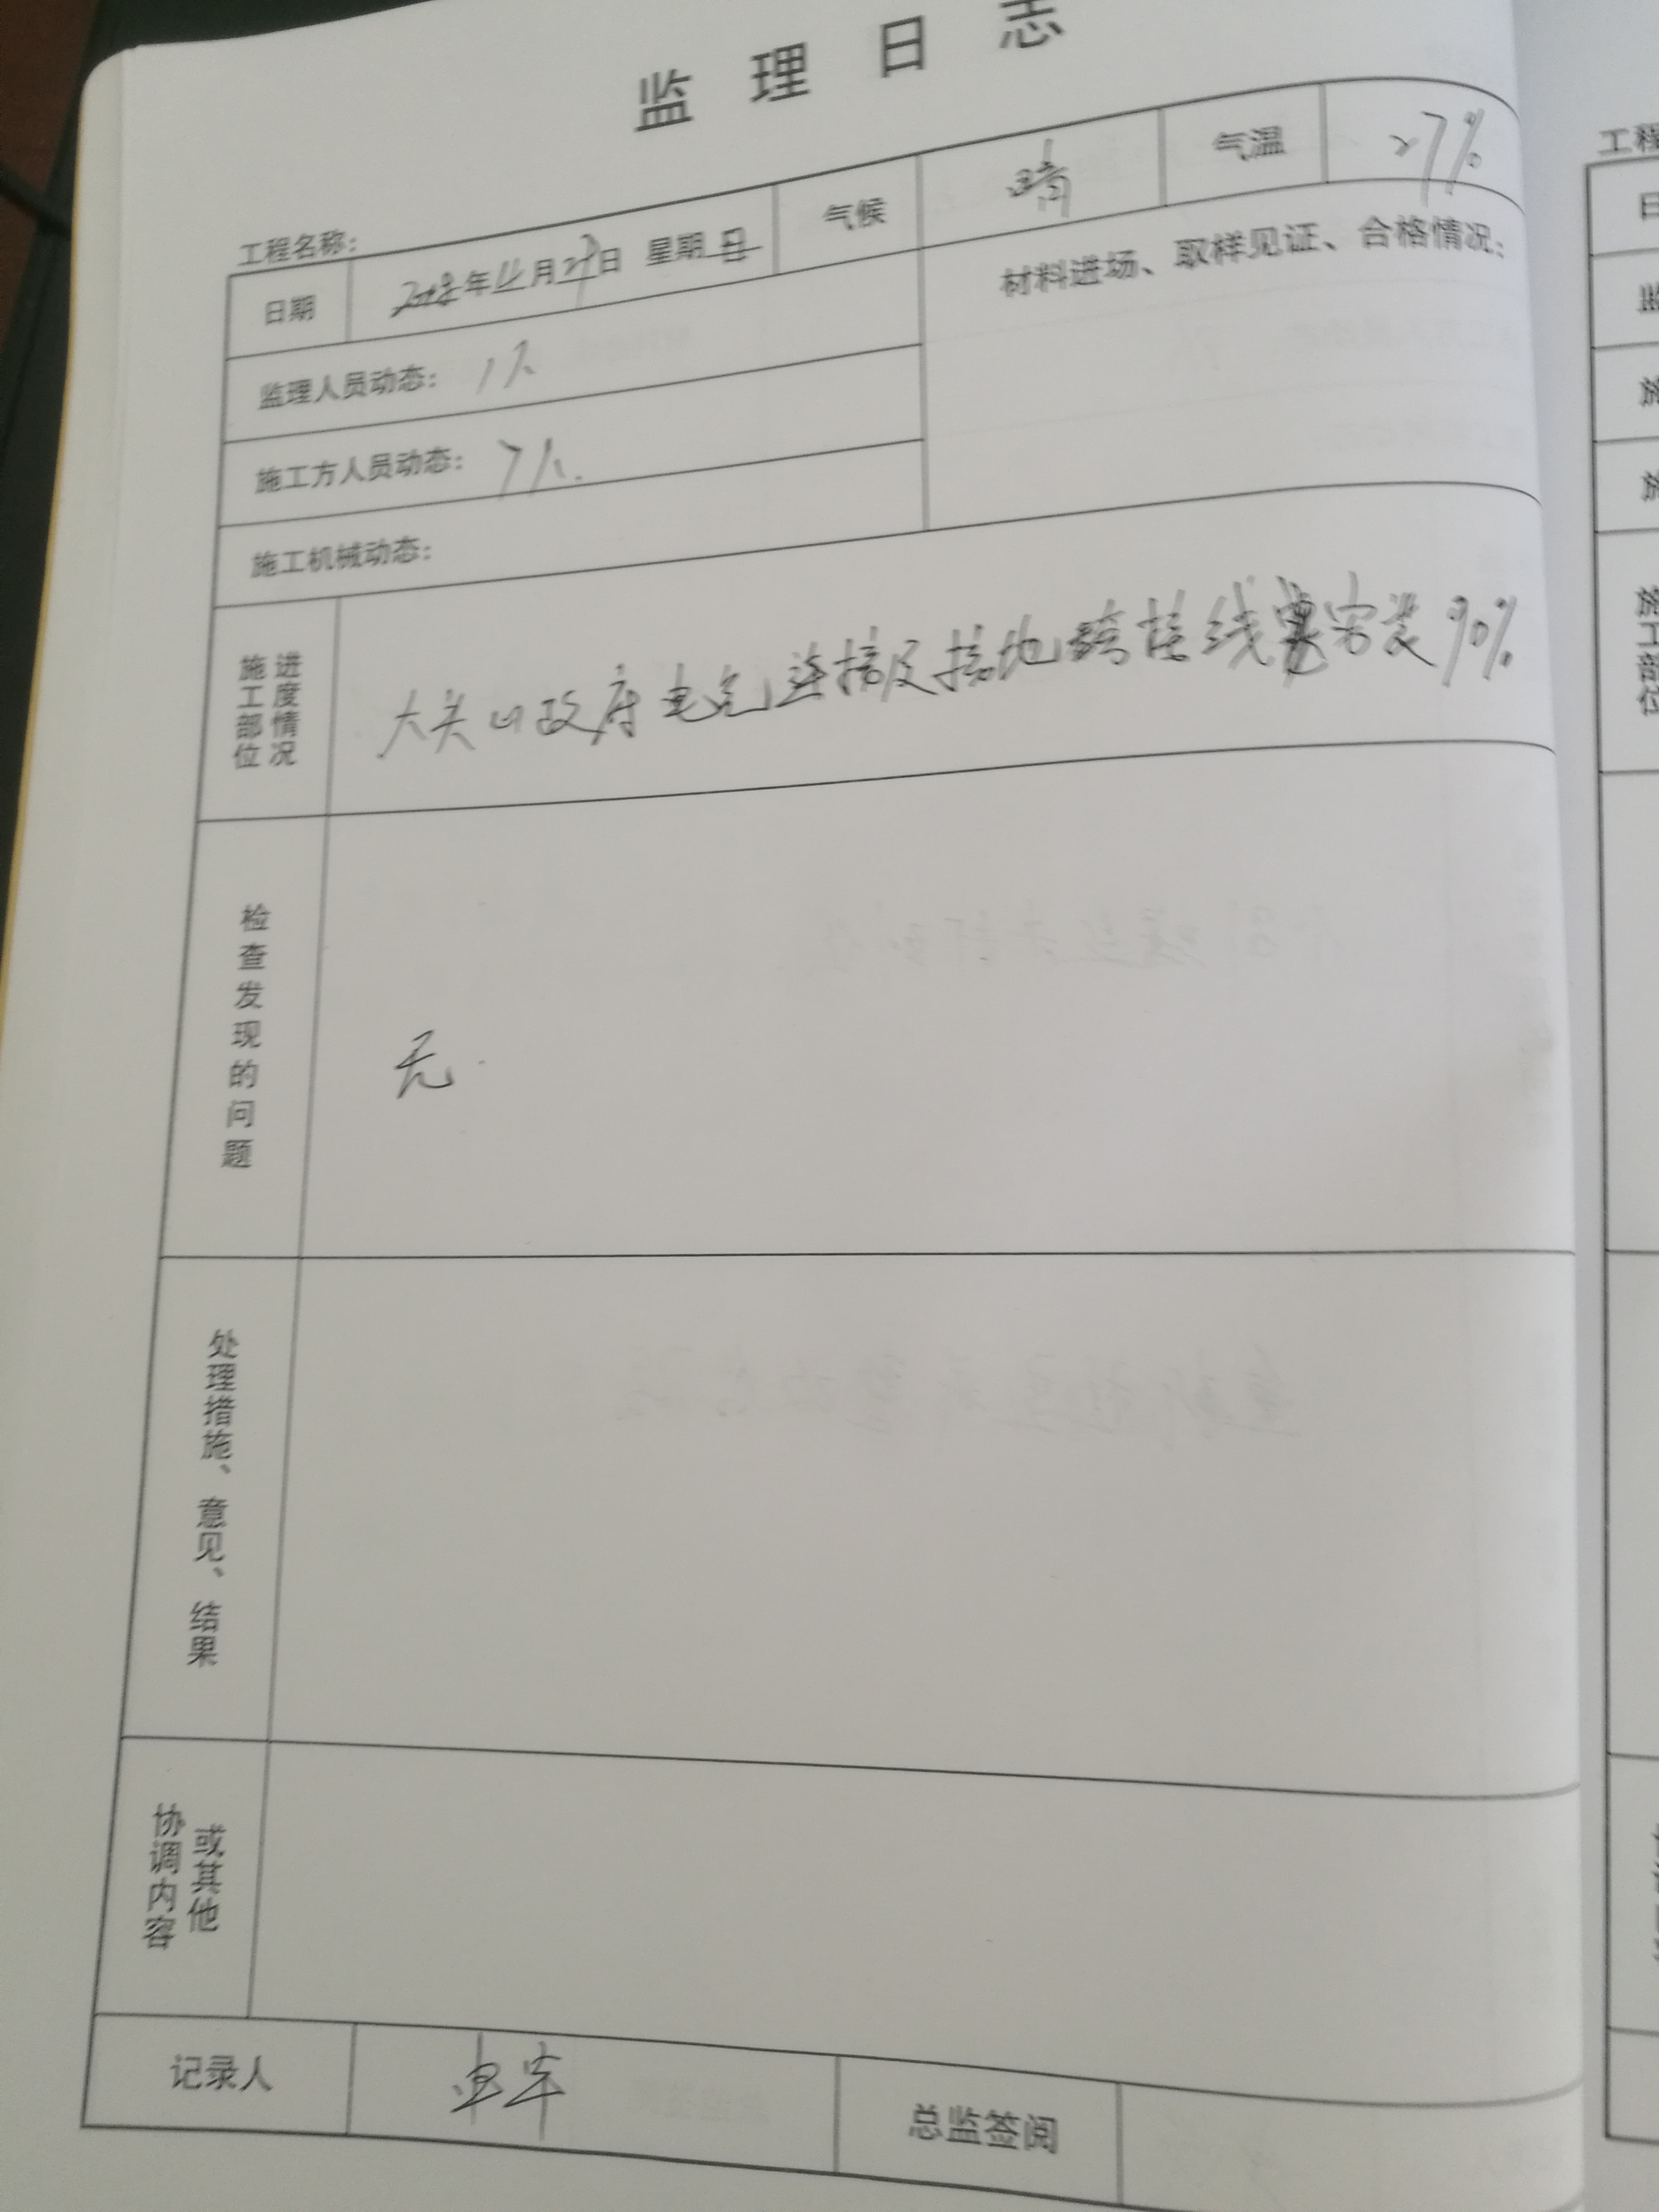 监理日志
工程名称：
日期 年11月2日 星期日 气候 晴 气温 27%
监理人员动态： 1人
材料进场、取样见证、合格情况：
施工方人员动态： 7人.
施工机械动态：
施工部位 进度情况 大关山政府电气连接及接地跨接线安装90%
检查发现的问题 无.
处理措施、意见、结果
协调内容 或其他
记录人
总监签阅
工程
日
监